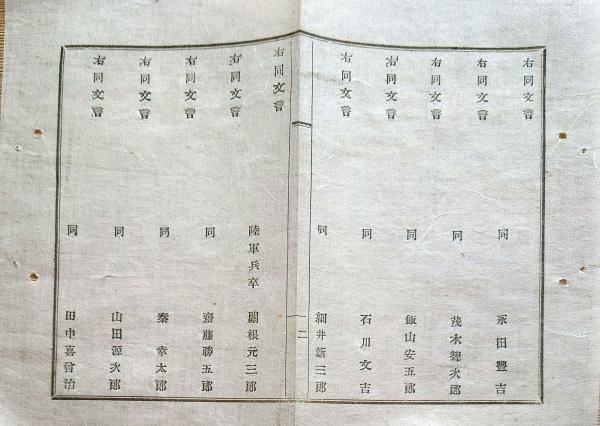 右同文畧 同 永田豐吉
右同文畧 同 茂木鐘次郎
右同文畧 同 飯山安五郎
右同文畧 同 石川文吉
右同文畧 同 細井新三郎
一二
右同文畧 陸軍兵卒 關根元三郎
右同文畧 同 齋藤勝五郎
右同文畧 同 秦幸太郎
右同文畧 同 山田源次郎
右同文畧 同 田中喜曾治